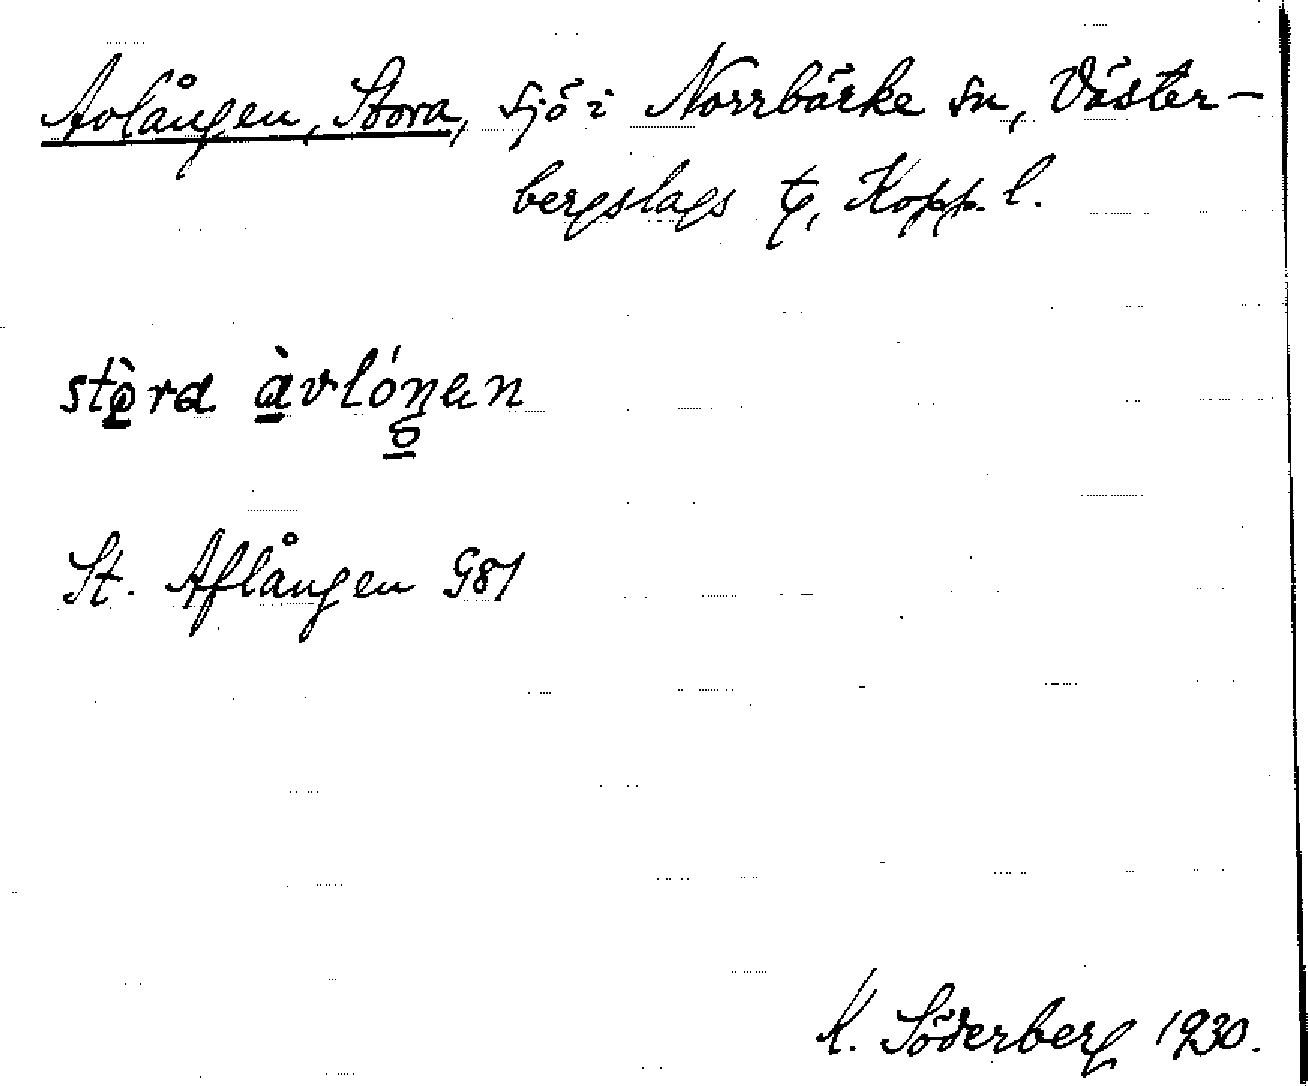 Avlången, Stora, sjö i Norrbärke sn, Väster-
bergslags tg, Kopp. l.
stòra àvlóŋen
St. Aflången G81
K. Söderberg 1930.